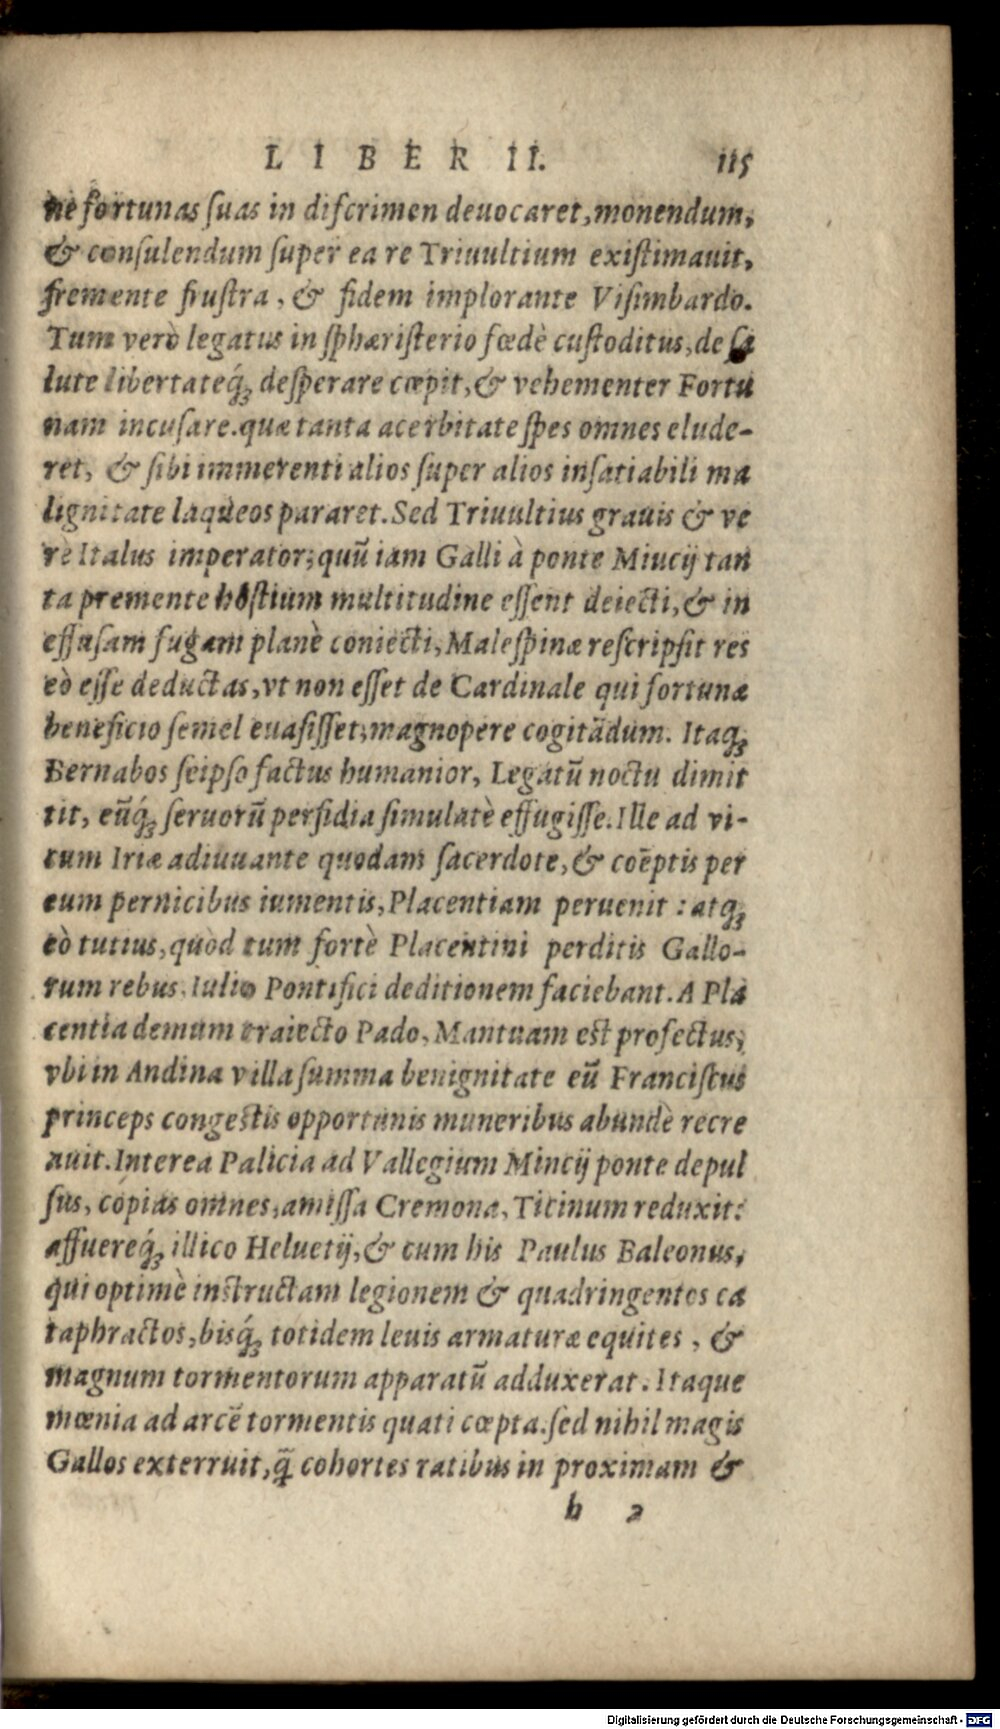 LIBER II. 115
ne fortunas ſuas in diſcrimen deuocaret, monendum,
& conſulendum ſuper ea re Triuultium exiſtimauit,
fremente fruſtra, & fidem implorante Viſimbardo.
Tum verò legatus in ſphæriſterio fœdè cuſtoditus, de ſa
lute libertateq́ꝫ deſperare cœpit, & vehementer Fortu
nam incuſare. quæ tanta acerbitate ſpes omnes elude-
ret, & ſibi immerenti alios ſuper alios inſatiabili ma
lignitate laqueos pararet. Sed Triuultius grauis & ve
rè Italus imperator; quū iam Galli à ponte Miucij tan
ta premente hoſtium multitudine eſſent deiecti, & in
effuſam fugam planè coniecti, Maleſpinæ reſcripſit res
eò eſſe deductas, vt non eſſet de Cardinale qui fortunæ
beneficio ſemel euaſiſſet; magnopere cogitādum. Itaqꝫ
Bernabos ſeipſo factus humanior, Legatū noctu dimit
tit, eūq́ꝫ ſeruorū perfidia ſimulatè effugiſſe. Ille ad vi-
cum Iriæ adiuuante quodam ſacerdote, & coēptis per
eum pernicibus iumentis, Placentiam peruenit : atqꝫ
eò tutius, quòd tum fortè Placentini perditis Gallo-
rum rebus, Iulio Pontifici deditionem faciebant. A Pla
centia demum traiecto Pado, Mantuam eſt profectus,
vbi in Andina villa ſumma benignitate eū Franciſcus
princeps congeſtis opportunis muneribus abundè recre
auit. Interea Palicia ad Vallegium Mincij ponte depul
ſus, copias omnes, amiſſa Cremona, Ticinum reduxit:
affuereq́ꝫ illico Heluetij, & cum his Paulus Baleonus,
qui optimè inſtructam legionem & quadringentos ca
taphractos, bisq́ꝫ totidem leuis armaturæ equites, &
magnum tormentorum apparatū adduxerat. Itaque
mœnia ad arcē tormentis quati cœpta. ſed nihil magis
Gallos exterruit, q̄ cohortes ratibus in proximam &
h 2
Digitalisierung gefördert durch die Deutsche Forschungsgemeinschaft - DFG